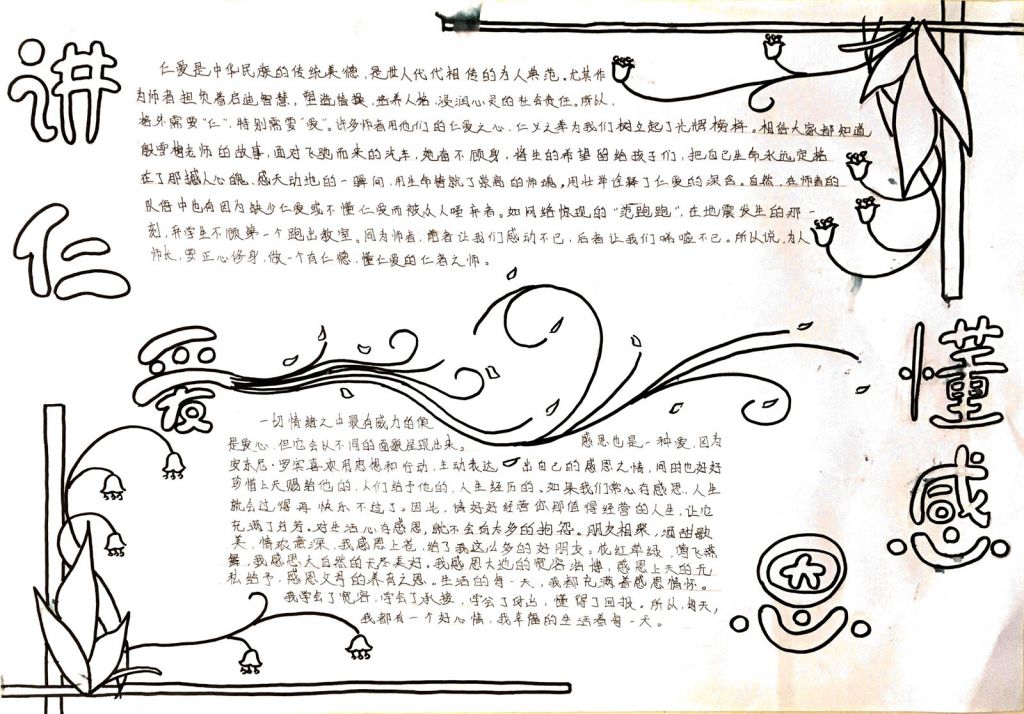 讲仁爱
仁爱是中华民族的传统美德,是世人代代相传的为人典范。尤其作
为师者担负着启迪智慧,塑造情操,培养人格,浸润心灵的社会责任。所以,
格外需要“仁”,特别需要“爱”。许多师者用他们的仁爱之心、仁义之举为我们树立起了光辉榜样。相信大家都知道
殷雪梅老师的故事,面对飞驰而来的汽车,她奋不顾身,将生的希望留给孩子们,把自己生命永远定格
在了那撼人心魄、感天动地的一瞬间,用生命铸就了崇高的师魂,用壮举诠释了仁爱的深含。自然,在师者的
队伍中也有因为缺少仁爱或不懂仁爱而被众人唾弃者。如网络惊现的“范跑跑”,在地震发生的那一
刻,弃学生不顾第一个跑出教室。同为师者,前者让我们感动不已,后者让我们唏嘘不已。所以说,为人
师长,要正心修身,做一个有仁德、懂仁爱的仁者之师。
懂感恩
一切情绪之中最有威力的便
是爱心,但它会从不同的面貌呈现出来。感恩也是一种爱,因为
安东尼·罗宾喜欢用思想和行动,主动表达出自己的感恩之情,同时也好好
珍惜上天赐给他的、人们给予他的、人生经历的。如果我们常心存感恩,人生
就会过得再快乐不过了。因此,请好好经营你那值得经营的人生,让它
充满了芬芳。对生活心存感恩,就不会有太多的抱怨。朋友相聚,酒甜歌
美,情浓意深,我感恩上苍,给了我这么多的好朋友,花红草绿,莺飞燕
舞,我感恩大自然的无尽美好。我感恩大地的宽容浩博,感恩上天的无
私给予,感恩父母的养育之恩。生活的每一天,我都充满着感恩情怀。
我学会了宽容,学会了承接,学会了付出,懂得了回报。所以,每天,
我都有一个好心情,我幸福的生活着每一天。